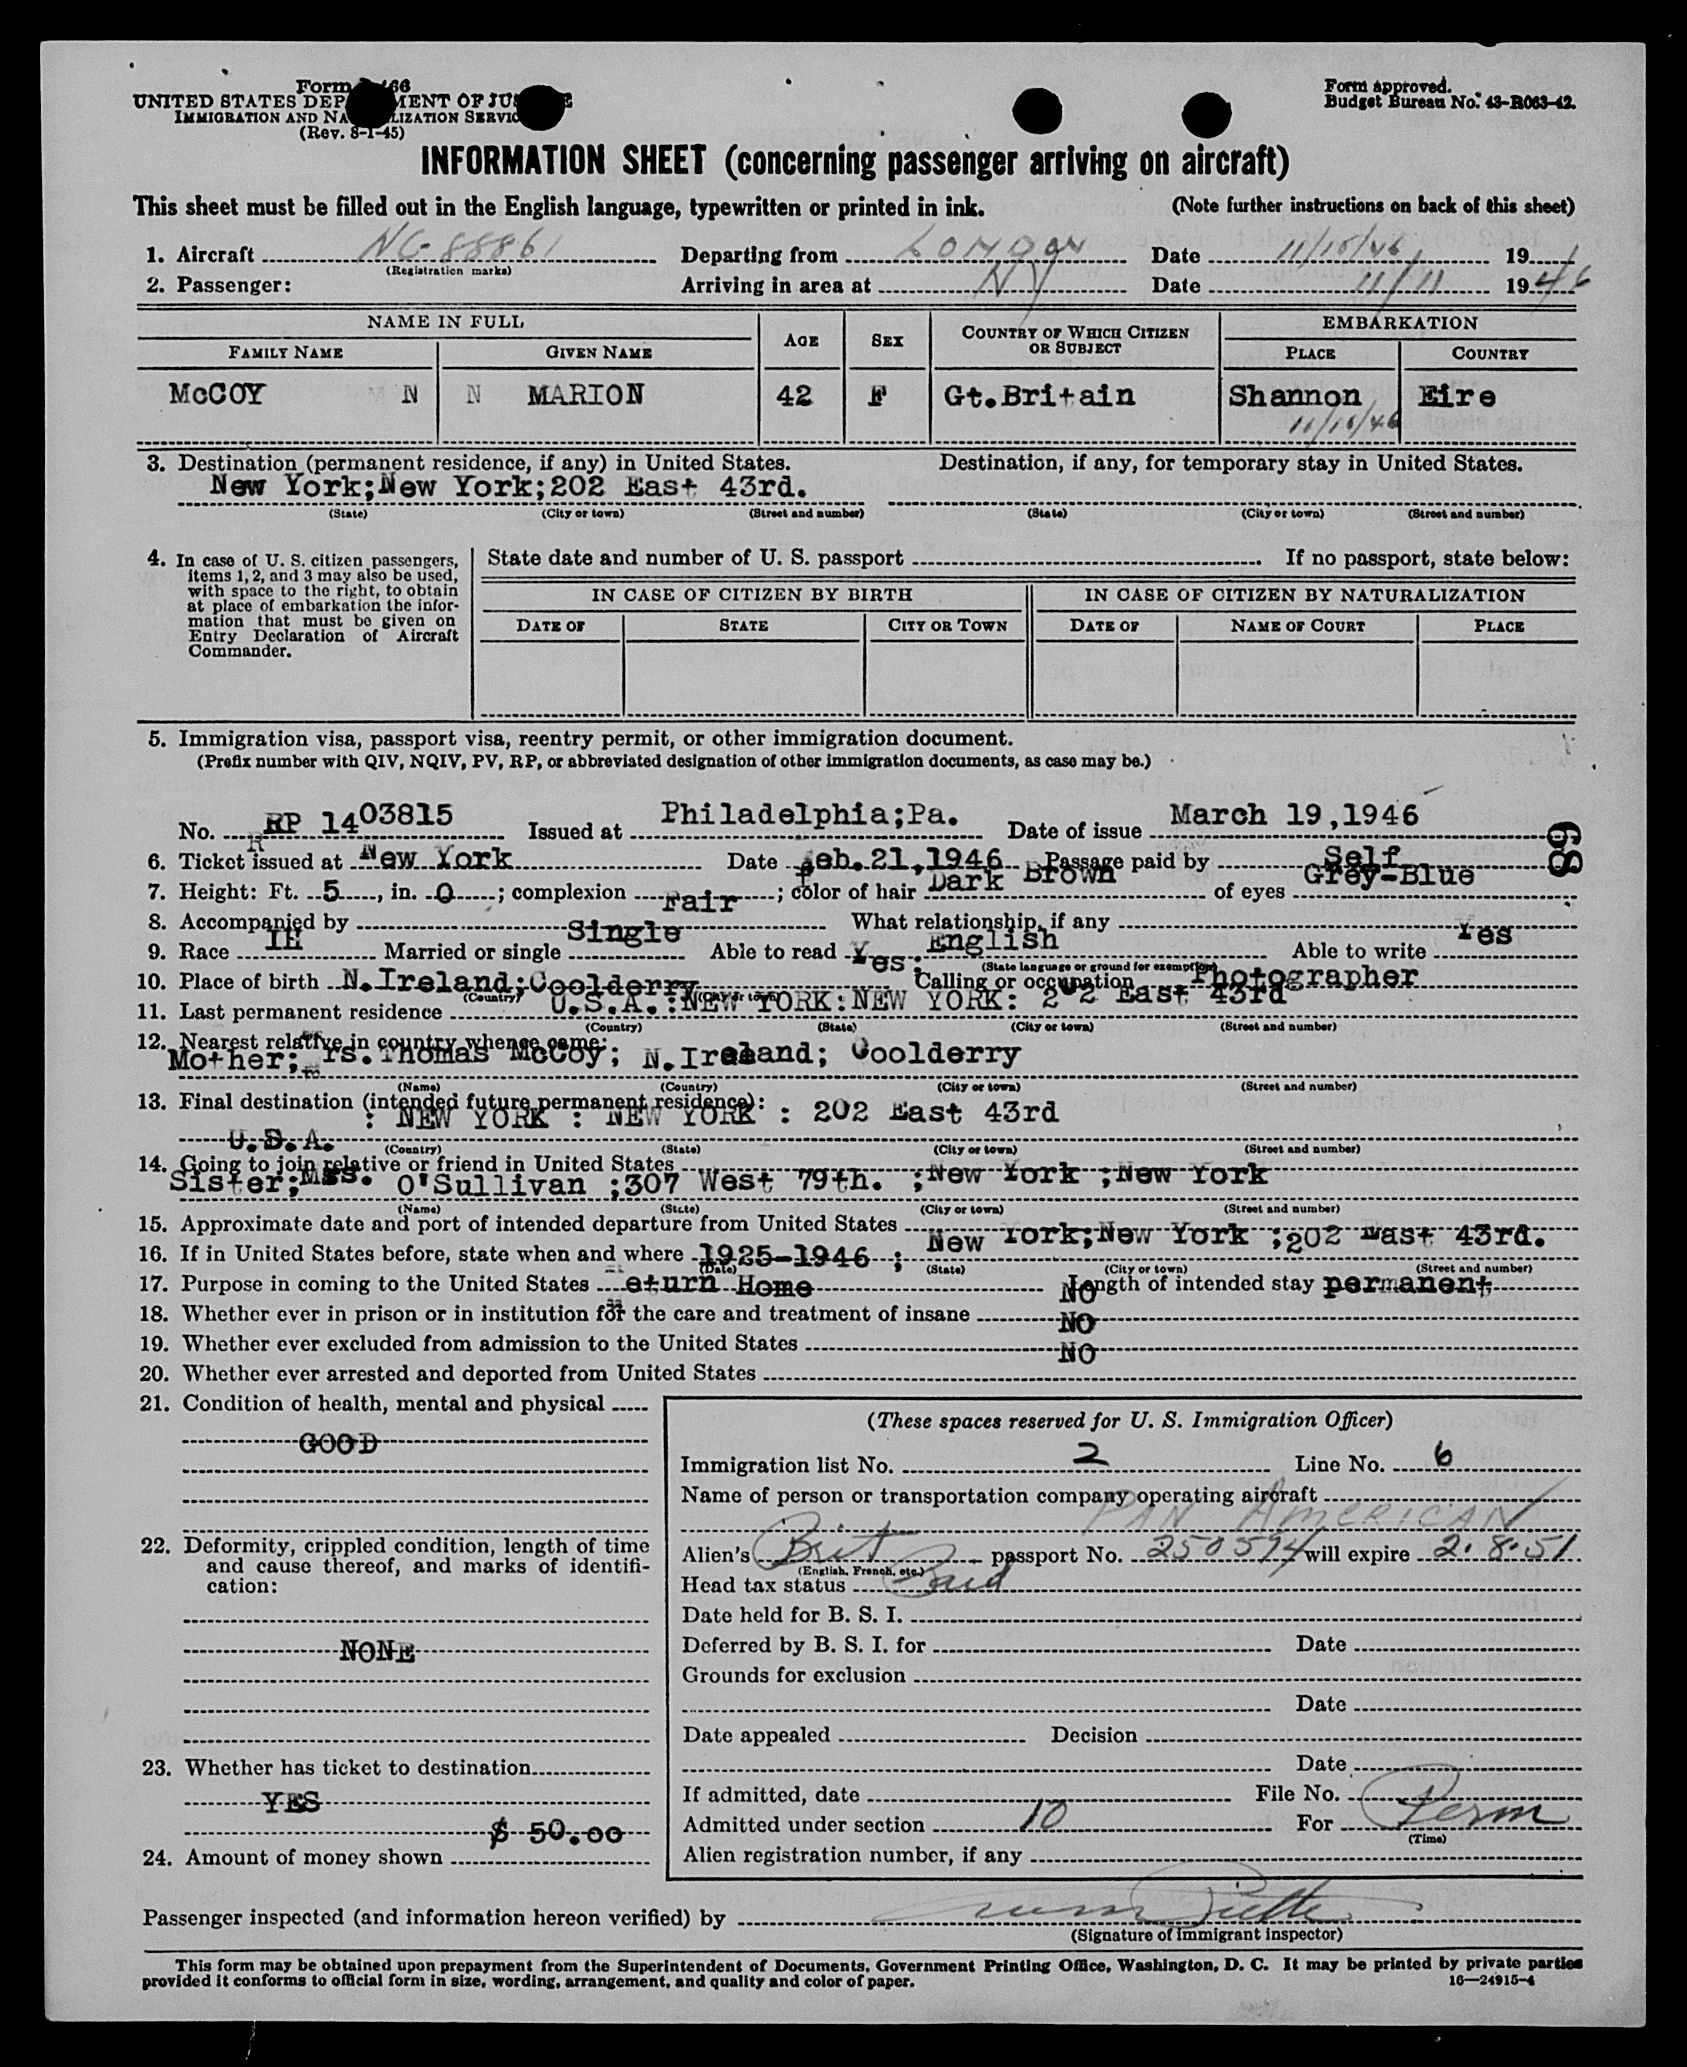 Form I-466
UNITED STATES DEPARTMENT OF JUSTICE
IMMIGRATION AND NATURALIZATION SERVICE
(Rev. 8-1-45)
Form approved.
Budget Bureau No. 43-R063-42.
INFORMATION SHEET (concerning passenger arriving on aircraft)
This sheet must be filled out in the English language, typewritten or printed in ink. (Note further instructions on back of this sheet)
1. Aircraft NC-88861 Departing from London Date 11/10/46 19
(Registration marks)
2. Passenger: Arriving in area at NY Date 11/11 1946
NAME IN FULL AGE SEX COUNTRY OF WHICH CITIZEN OR SUBJECT EMBARKATION
FAMILY NAME GIVEN NAME PLACE COUNTRY
McCOY N N MARION 42 F Gt.Britain Shannon Eire
11/10/46
3. Destination (permanent residence, if any) in United States. Destination, if any, for temporary stay in United States.
New York;New York;202 East 43rd.
(State) (City or town) (Street and number) (State) (City or town) (Street and number)
4. In case of U. S. citizen passengers, items 1, 2, and 3 may also be used, with space to the right, to obtain at place of embarkation the information that must be given on Entry Declaration of Aircraft Commander.
State date and number of U. S. passport If no passport, state below:
IN CASE OF CITIZEN BY BIRTH IN CASE OF CITIZEN BY NATURALIZATION
DATE OF STATE CITY OR TOWN DATE OF NAME OF COURT PLACE
5. Immigration visa, passport visa, reentry permit, or other immigration document.
(Prefix number with QIV, NQIV, PV, RP, or abbreviated designation of other immigration documents, as case may be.)
No. RP 1403815 Issued at Philadelphia;Pa. Date of issue March 19,1946
89
6. Ticket issued at New York Date Feb.21,1946 Passage paid by Self
7. Height: Ft. 5, in. 0; complexion Fair; color of hair Dark Brown of eyes Grey-Blue
8. Accompanied by What relationship, if any
9. Race IR Married or single Single Able to read Yes; English Able to write Yes
(State language or ground for exemption)
10. Place of birth N.Ireland;Coolderry Calling or occupation Photographer
(Country) (City or town)
11. Last permanent residence U.S.A.:NEW YORK:NEW YORK: 202 East 43rd
(Country) (State) (City or town) (Street and number)
12. Nearest relative in country whence came:
Mother; Mrs.Thomas McCoy; N.Ireland; Coolderry
(Name) (Country) (City or town) (Street and number)
13. Final destination (intended future permanent residence):
U.S.A. : NEW YORK : NEW YORK : 202 East 43rd
(Country) (State) (City or town) (Street and number)
14. Going to join relative or friend in United States
Sister;Mrs. O'Sullivan ;307 West 79th. ;New York ;New York
(Name) (State) (City or town) (Street and number)
15. Approximate date and port of intended departure from United States
16. If in United States before, state when and where 1925-1946 ; New York;New York ;202 East 43rd.
(Date) (State) (City or town) (Street and number)
17. Purpose in coming to the United States Return Home Length of intended stay permanent
18. Whether ever in prison or in institution for the care and treatment of insane NO
19. Whether ever excluded from admission to the United States NO
20. Whether ever arrested and deported from United States NO
21. Condition of health, mental and physical
GOOD
22. Deformity, crippled condition, length of time and cause thereof, and marks of identification:
NONE
23. Whether has ticket to destination
YES
$ 50.00
24. Amount of money shown
(These spaces reserved for U. S. Immigration Officer)
Immigration list No. 2 Line No. 6
Name of person or transportation company operating aircraft
PAN AMERICAN
Alien's Brit passport No. 250594 will expire 2.8.51
(English, French, etc.)
Head tax status Paid
Date held for B. S. I.
Deferred by B. S. I. for Date
Grounds for exclusion
Date
Date appealed Decision
Date
If admitted, date File No.
Admitted under section 10 For Perm
(Time)
Alien registration number, if any
Passenger inspected (and information hereon verified) by
(Signature of immigrant inspector)
This form may be obtained upon prepayment from the Superintendent of Documents, Government Printing Office, Washington, D. C. It may be printed by private parties
provided it conforms to official form in size, wording, arrangement, and quality and color of paper. 16—24915-4